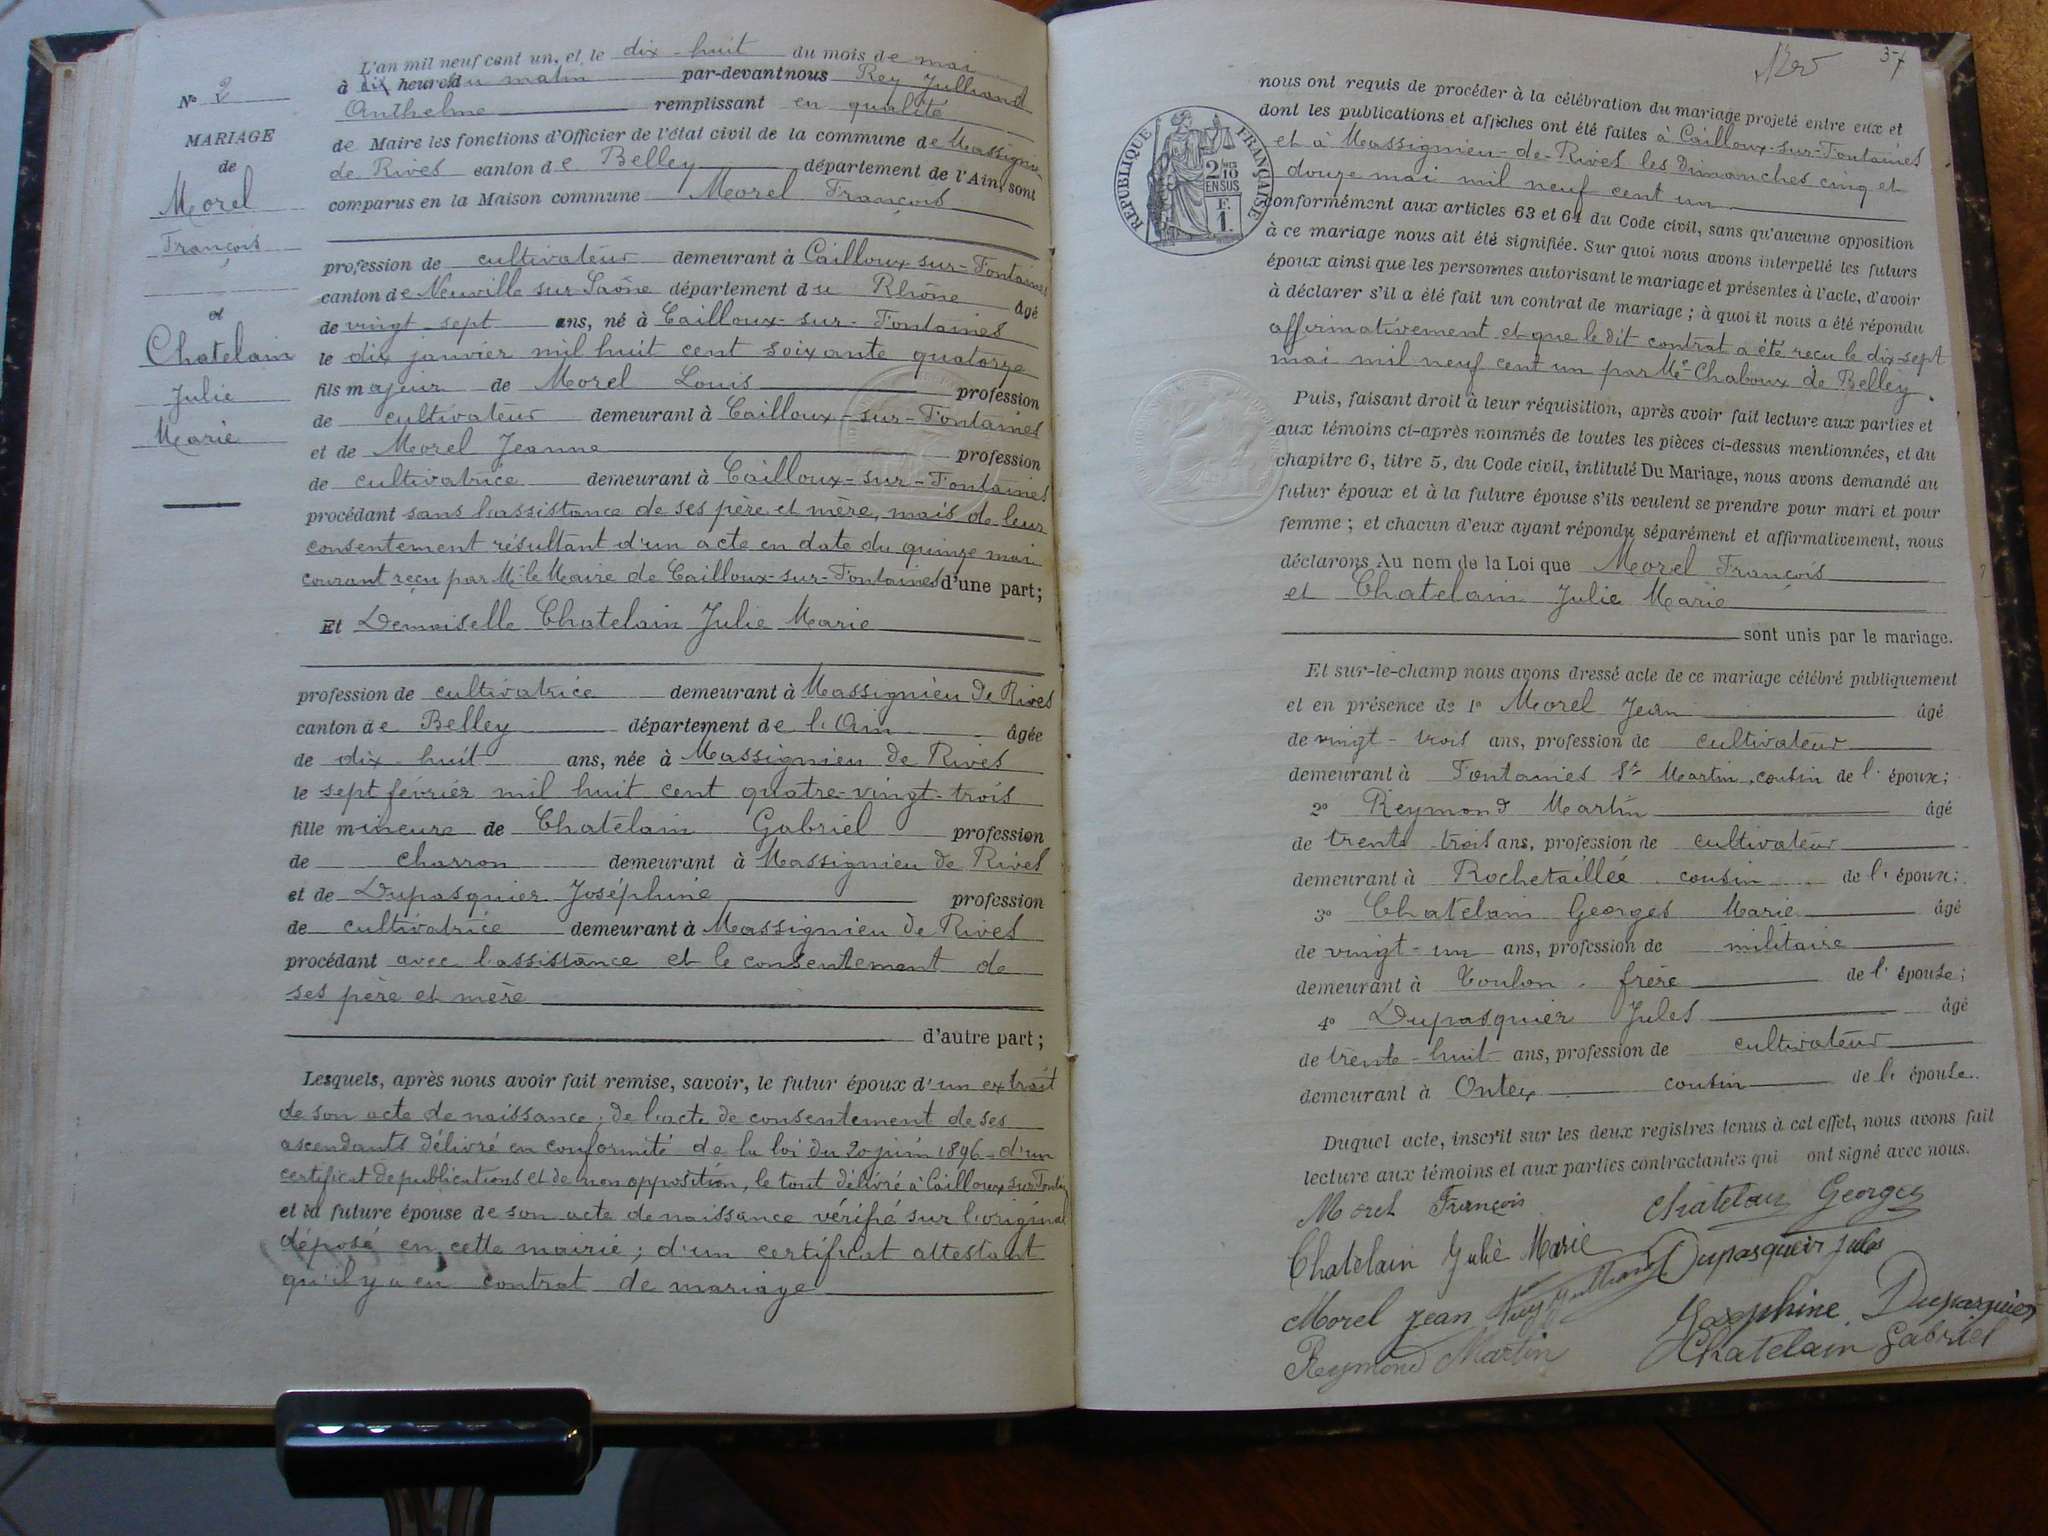 N° 2
MARIAGE
de
Morel
François
et
Chatelain
Julie
Marie
L'an mil neuf cent un, et le dix-huit du mois de mai
à dix heures du matin par-devant nous Rey Julliand
Anthelme remplissant en qualité
de Maire les fonctions d'Officier de l'état civil de la commune de Massignieu
de Rives canton de Belley département de l'Ain, sont
comparus en la Maison commune Morel François
profession de cultivateur demeurant à Cailloux-sur-Fontaines
canton de Neuville sur Saône département du Rhône âgé
de vingt sept ans, né à Cailloux-sur-Fontaines
le dix janvier mil huit cent soixante quatorze
fils majeur de Morel Louis profession
de cultivateur demeurant à Cailloux-sur-Fontaines
et de Morel Jeanne profession
de cultivatrice demeurant à Cailloux-sur-Fontaines
procédant sans l'assistance de ses père et mère, mais de leur
consentement résultant d'un acte en date du quinze mai
courant reçu par Mr le Maire de Cailloux-sur-Fontaines d'une part;
Et Demoiselle Chatelain Julie Marie
profession de cultivatrice demeurant à Massignieu de Rives
canton de Belley département de l'Ain âgée
de dix huit ans, née à Massignieu de Rives
le sept février mil huit cent quatre-vingt-trois
fille mineure de Chatelain Gabriel profession
de charron demeurant à Massignieu de Rives
et de Dupasquier Joséphine profession
de cultivatrice demeurant à Massignieu de Rives
procédant avec l'assistance et le consentement de
ses père et mère
d'autre part;
Lesquels, après nous avoir fait remise, savoir, le futur époux d'un extrait
de son acte de naissance; de l'acte de consentement de ses
ascendants délivré en conformité de la loi du 20 juin 1896 - d'un
certificat de publications et de non opposition, le tout délivré à Cailloux sur Fontes
et la future épouse de son acte de naissance vérifié sur l'original
déposé en cette mairie; d'un certificat attestant
qu'il y a eu contrat de mariage
37
RÉPUBLIQUE FRANÇAISE
2/10
EN SUS
F.
1.
nous ont requis de procéder à la célébration du mariage projeté entre eux et
dont les publications et affiches ont été faites à Cailloux-sur-Fontaines
et à Massignieu-de-Rives les dimanches cinq et
douze mai mil neuf cent un
conformément aux articles 63 et 64 du Code civil, sans qu'aucune opposition
à ce mariage nous ait été signifiée. Sur quoi nous avons interpellé les futurs
époux ainsi que les personnes autorisant le mariage et présentes à l'acte, d'avoir
à déclarer s'il a été fait un contrat de mariage; à quoi il nous a été répondu
affirmativement et que le dit contrat a été reçu le dix-sept
mai mil neuf cent un par Me Chaboux de Belley.
Puis, faisant droit à leur réquisition, après avoir fait lecture aux parties et
aux témoins ci-après nommés de toutes les pièces ci-dessus mentionnées, et du
chapitre 6, titre 5, du Code civil, intitulé Du Mariage, nous avons demandé au
futur époux et à la future épouse s'ils veulent se prendre pour mari et pour
femme; et chacun d'eux ayant répondu séparément et affirmativement, nous
déclarons Au nom de la Loi que Morel François
et Chatelain Julie Marie
sont unis par le mariage.
Et sur-le-champ nous avons dressé acte de ce mariage célébré publiquement
et en présence de 1° Morel Jean âgé
de vingt-trois ans, profession de cultivateur
demeurant à Fontaines St Martin, cousin de l'époux;
2° Reymond Martin âgé
de trente-trois ans, profession de cultivateur
demeurant à Rochetaillée cousin de l'époux;
3° Chatelain Georges Marie âgé
de vingt-un ans, profession de militaire
demeurant à Toulon, frère de l'épouse;
4° Dupasquier Jules âgé
de trente-huit ans, profession de cultivateur
demeurant à Ontex cousin de l'épouse.
Duquel acte, inscrit sur les deux registres tenus à cet effet, nous avons fait
lecture aux témoins et aux parties contractantes qui ont signé avec nous.
Morel François Chatelain Georges
Chatelain Julie Marie Dupasquier Jules
Morel Jean Rey Julliand Josephine Dupasquier
Reymond Martin Chatelain Gabriel